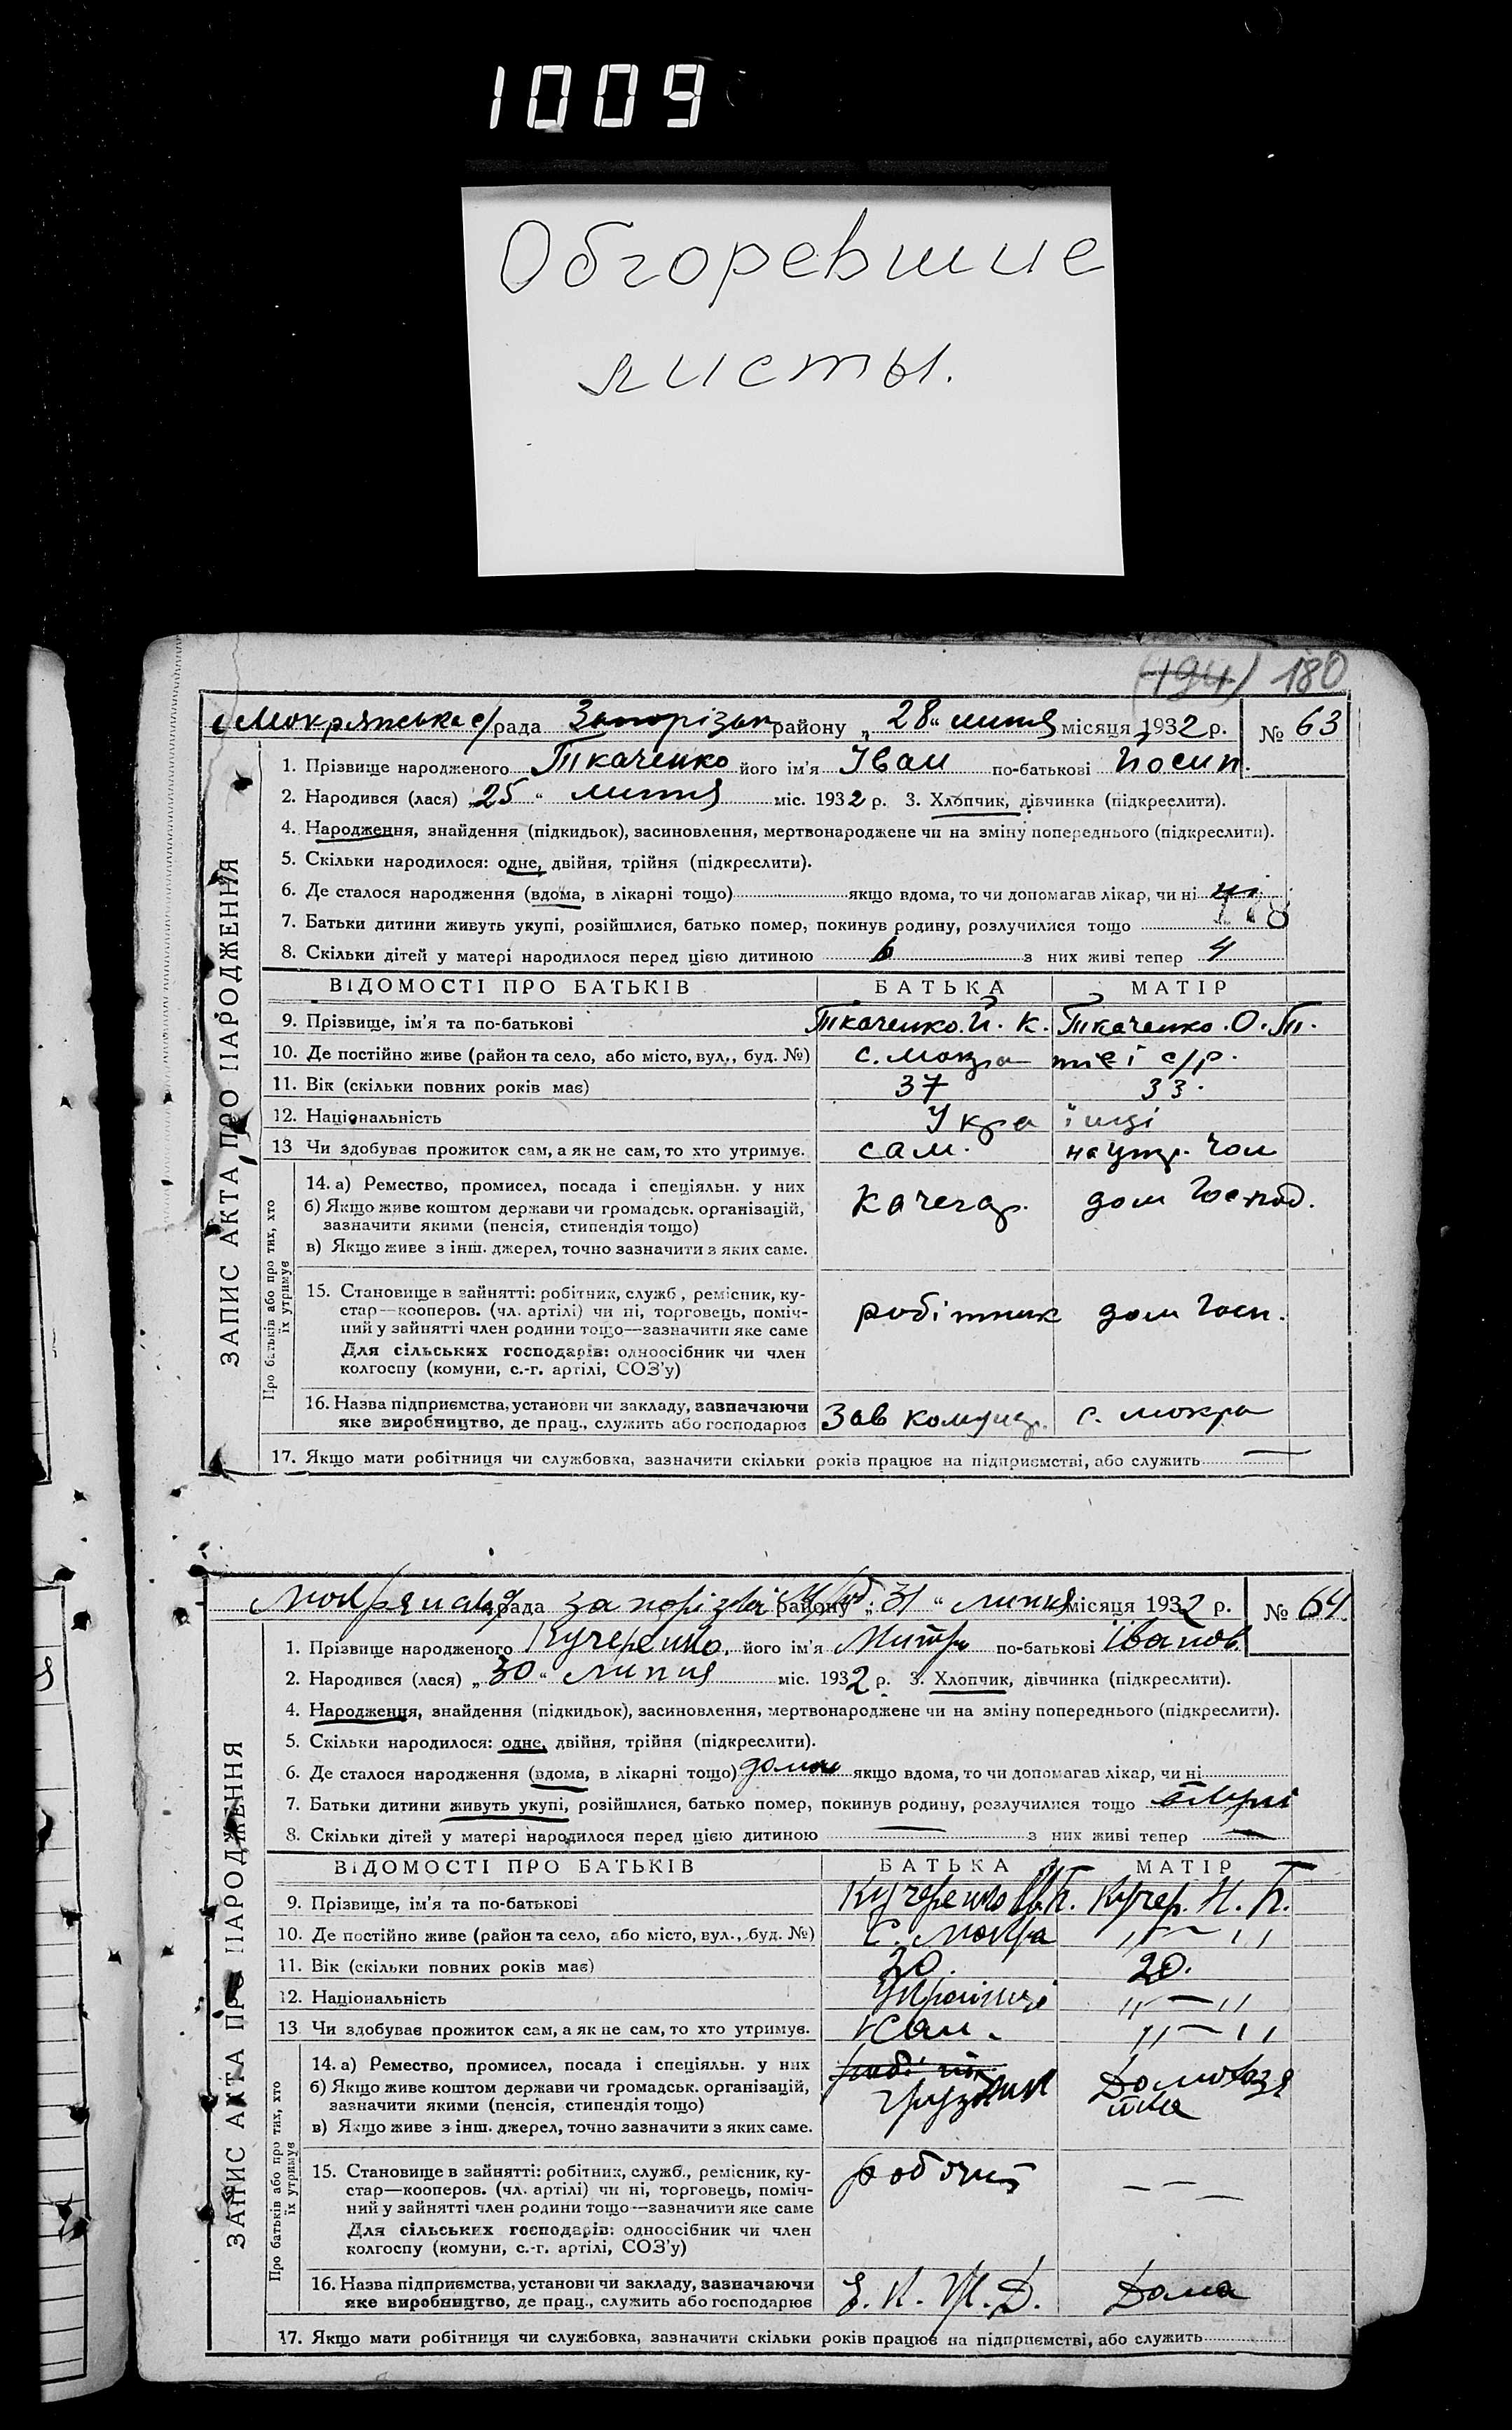 1009
Обгоревшие
листы.
(194) 180
Мокрянська с/рада Запорізьк району „28“ липня місяця 1932 р. № 63
ЗАПИС АКТА ПРО НАРОДЖЕННЯ
1. Прізвище народженого Ткаченко його ім'я Іван по-батькові Йосип.
2. Народився (лася) „25“ липня міс. 1932 р. 3. Хлопчик, дівчинка (підкреслити).
4. Народження, знайдення (підкидьок), засиновлення, мертвонароджене чи на зміну попереднього (підкреслити).
5. Скільки народилося: одне, двійня, трійня (підкреслити).
6. Де сталося народження (вдома, в лікарні тощо) якщо вдома, то чи допомагав лікар, чи ні ні
7. Батьки дитини живуть укупі, розійшлися, батько помер, покинув родину, розлучилися тощо
8. Скільки дітей у матері народилося перед цією дитиною 6 з них живі тепер 4
ВІДОМОСТІ ПРО БАТЬКІВ БАТЬКА МАТІР
9. Прізвище, ім'я та по-батькові Ткаченко. Й. К. Ткаченко. О. П.
10. Де постійно живе (район та село, або місто, вул., буд. №) с. Мокра тиєї с/р.
11. Вік (скільки повних років має) 37 33.
12. Національність Украінці
13 Чи здобуває прожиток сам, а як не сам, то хто утримує. сам. на утр. чол
Про батьків або про тих, хто
їх утримує
14. а) Ремество, промисел, посада і спеціяльн. у них
б) Якщо живе коштом держави чи громадськ. організацій,
зазначити якими (пенсія, стипендія тощо) Качегар. дом господ.
в) Якщо живе з інш. джерел, точно зазначити з яких саме.
15. Становище в зайнятті: робітник, служб., ремісник, ку-
стар—кооперов. (чл. артілі) чи ні, торговець, поміч-
ний у зайнятті член родини тощо—зазначити яке саме робітник дом госп.
Для сільських господарів: одноосібник чи член
колгоспу (комуни, с.-г. артілі, СОЗ'у)
16. Назва підприємства, установи чи закладу, зазначаючи
яке виробництво, де прац., служить або господарює Зав комунар. с. Мокра
17. Якщо мати робітниця чи службовка, зазначити скільки років працює на підприємстві, або служить —
рада району „31“ липня місяця 1932 р. № 64
ЗАПИС АКТА ПРО НАРОДЖЕННЯ
1. Прізвище народженого Кучеренко, його ім'я Митро по-батькові Іванов.
2. Народився (лася) „30“ липня міс. 1932 р. 3. Хлопчик, дівчинка (підкреслити).
4. Народження, знайдення (підкидьок), засиновлення, мертвонароджене чи на зміну попереднього (підкреслити).
5. Скільки народилося: одне, двійня, трійня (підкреслити).
6. Де сталося народження (вдома, в лікарні тощо) дома якщо вдома, то чи допомагав лікар, чи ні
7. Батьки дитини живуть укупі, розійшлися, батько помер, покинув родину, розлучилися тощо
8. Скільки дітей у матері народилося перед цією дитиною — з них живі тепер —
ВІДОМОСТІ ПРО БАТЬКІВ БАТЬКА МАТІР
9. Прізвище, ім'я та по-батькові Кучеренко Кучер. Н. П.
10. Де постійно живе (район та село, або місто, вул., буд. №) С. Мокра „—„
11. Вік (скільки повних років має) 30. 20.
12. Національність Українці „—„
13 Чи здобуває прожиток сам, а як не сам, то хто утримує. Сам. „—„
Про батьків або про тих, хто
їх утримує
14. а) Ремество, промисел, посада і спеціяльн. у них
б) Якщо живе коштом держави чи громадськ. організацій, грузчик Домохазя
зазначити якими (пенсія, стипендія тощо) йка
в) Якщо живе з інш. джерел, точно зазначити з яких саме.
15. Становище в зайнятті: робітник, служб., ремісник, ку- робочий
стар—кооперов. (чл. артілі) чи ні, торговець, поміч- — — —
ний у зайнятті член родини тощо—зазначити яке саме
Для сільських господарів: одноосібник чи член
колгоспу (комуни, с.-г. артілі, СОЗ'у)
16. Назва підприємства, установи чи закладу, зазначаючи
яке виробництво, де прац., служить або господарює Дома
17. Якщо мати робітниця чи службовка, зазначити скільки років працює на підприємстві, або служить